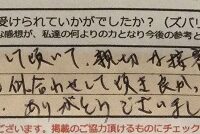 受けられていかがでしたか？（ズバリ
な感想が、私達の何よりの力となり今後の参考と
して頂いて、親切な接客
お似合わせして頂き良か
ありがとうございまし
ございます。掲載のご協力頂ける ものにチェック